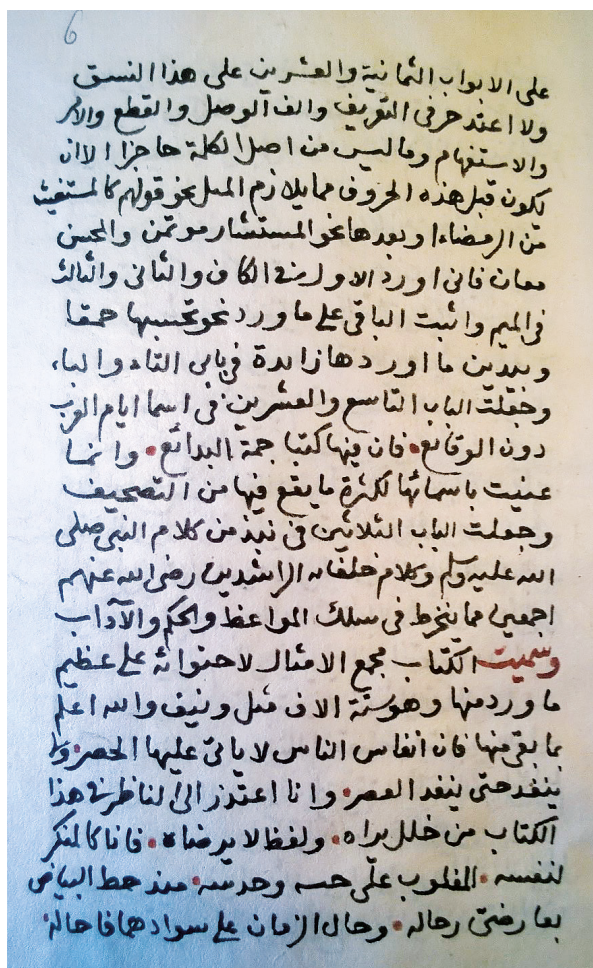 6
على الابواب الثمانية والعشرين على هذا النسق
ولا اعتد حرفى التعريف والف الوصل والقطع والامر
والاستفهام وما ليس من اصل الكلمة حاجزا الا ان
تكون قبل هذه الحروف مما يلازم المثل نحو قولهم كالمستغيث
من الرمضاء او بعدها نحو المستشار موتمن والمحسن
معان فانى اورد الاول فى الكاف والثانى والثالث
فى الميم واثبت الباقى على ما ورد نحو تحسبها حمقا
وبيدين ما اوردها زايدة فى بابى التاء والباء
وجعلت الباب التاسع والعشرين فى اسما ايام العرب
دون الوقائع فان فيها كتبا جمة البدائع وانما
عنيت باسمائها لكثرة ما يقع فيها من التصحيف
وجعلت الباب الثلاثين فى نبذ من كلام النبى صلى
الله عليه وسلم وكلام خلفائه الراشدين رضى الله عنهم
اجمعين مما ينخرط فى سلك المواعظ والحكم والآداب
وسميت الكتاب مجمع الامثال لاحتوائه على عظيم
ما ورد منها وهو ستة الاف مثل ونيف والله اعلم
بما بقى منها فان انفاس الناس لا ياتى عليها الحصر ولا
ينفد حتى ينفد العصر وانا اعتذر الى الناظر فى هذا
الكتاب من خلل يراه ولفظ لا يرضاه فانا كالمنكر
لنفسه المغلوب على حسه وحدسه منذ حط البياض
بعارضى رحاله وحال الزمان على سوادهما فاحاله